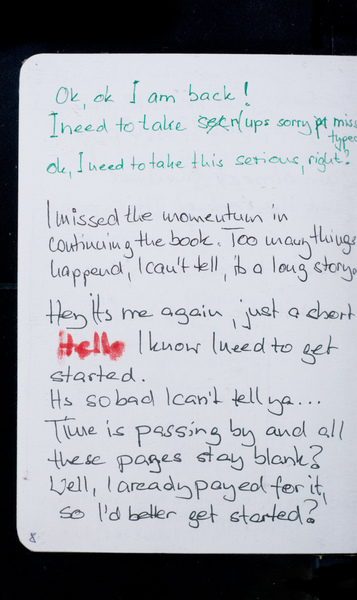 Ok, ok I am back!
I need to take ser/ups sorry pt miss
typed
ok, I need to take this serious, right?
I missed the momentum in
continuing the book. Too many things
happend, I can't tell, its a long story
Hey its me again, just a short
Hello I know I need to get
started.
Its so bad I can't tell ya...
Time is passing by and all
these pages stay blank?
Well, I aready payed for it,
so I'd better get started?
8